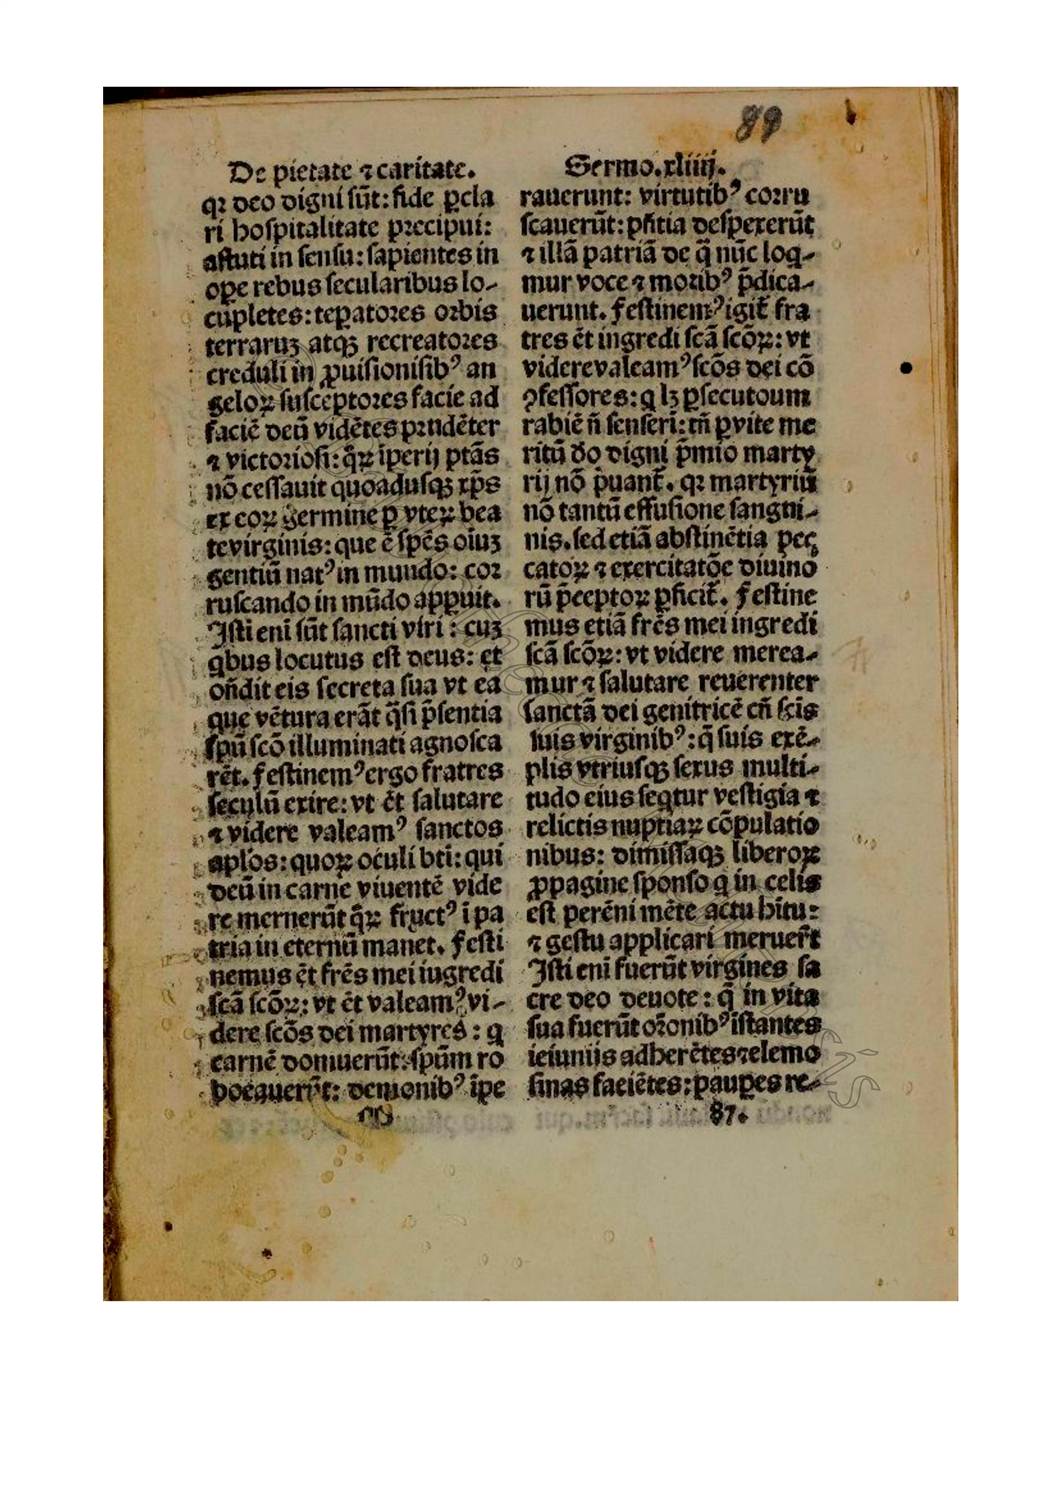 89
De pietate ⁊ caritate.
qꝛ deo digni sũt: fide p̱cla
ri hospitalitate pꝛecipui:
astuti in sensu: sapientes in
ope rebus secularibus lo-
cupletes: tēpatoꝛes oꝛbis
terraruʒ atqʒ recreatoꝛes
creduli in ꝓuisionisibꝰ an
geloꝝ susceptoꝛes facie ad
faciē deū vidētes pꝛudēter
⁊ victoꝛiosi: q̄ꝝ īperij ptās
nō cessauit quoadusqʒ xp̄s
ex coꝝ germine ꝑ vteꝝ bea
te virginis: que ē sp̄es oiuʒ
gentiū natꝰ in mundo: coꝛ
ruscando in mūdo apꝑuit.
Isti enī sūt sancti viri: cuʒ
qbus locutus est deus: et
oñdit eis secreta sua vt ea
que vētura erāt q̄si p̄sentia
spū scō illuminati agnosca
rēt. festinemꝰ ergo fratres
seculū exire: vt ēt salutare
⁊ videre valeamꝰ sanctos
aplōs: quoꝝ oculi bti: qui
deū in carne viuentē vide
re mernerūt q̄ꝝ fructꝰ ī pa
tria in eternū manet. festi
nemus ēt frēs mei iugredi
scā scōꝝ: vt ēt valeamꝰ vi-
dere scōs dei martyres: q
carnē domuerūt: spūm ro
boꝛauerūt: demonibꝰ īpe
M
Sermo.xliiij.
rauerunt: virtutibꝰ coꝛru
scauerūt: pñtia despexerūt
⁊ illā patriā de q̄ nūc loq-
mur voce ⁊ moꝛibꝰ p̄dica-
uerunt. festinemꝰ igit̄ fra
tres ēt ingredi scā scōꝝ: vt
videre valeamꝰ scōs dei cō
ꝯfessores: q lʒ ꝑsecutoum
rabiē ñ senserī: tñ ꝑ vite me
ritū do digni p̄mio marty
rij nō p̄uant̄. qꝛ martyriū
nō tantū effusione sangui-
nis. sed etiā abstinētia pec
catoꝝ ⁊ exercitatōe diuino
rū p̄ceptoꝝ ꝑficit̄. festine
mus etiā frēs mei ingredi
scā scōꝝ: vt videre merea-
mur ⁊ salutare reuerenter
sanctā dei genitricē cū scīs
suis virginibꝰ: q̄ suis exē-
plis vtriusqʒ sexus multi-
tudo eius seqtur vestigia ⁊
relictis nuptiaꝝ cōpulatio
nibus: dimissaqʒ liberoꝝ
ꝓpagine sponso q in celis
est perēni mēte actu hītu:
⁊ gestu applicari meruer̄t
Isti enī fuerūt virgines sa
cre deo deuote: q̄ in vita
sua fuerūt oꝛonibꝰ īstantes
ieiuniis adherētes ⁊ elemo
sinas faciētes: pauꝑes re-
87.